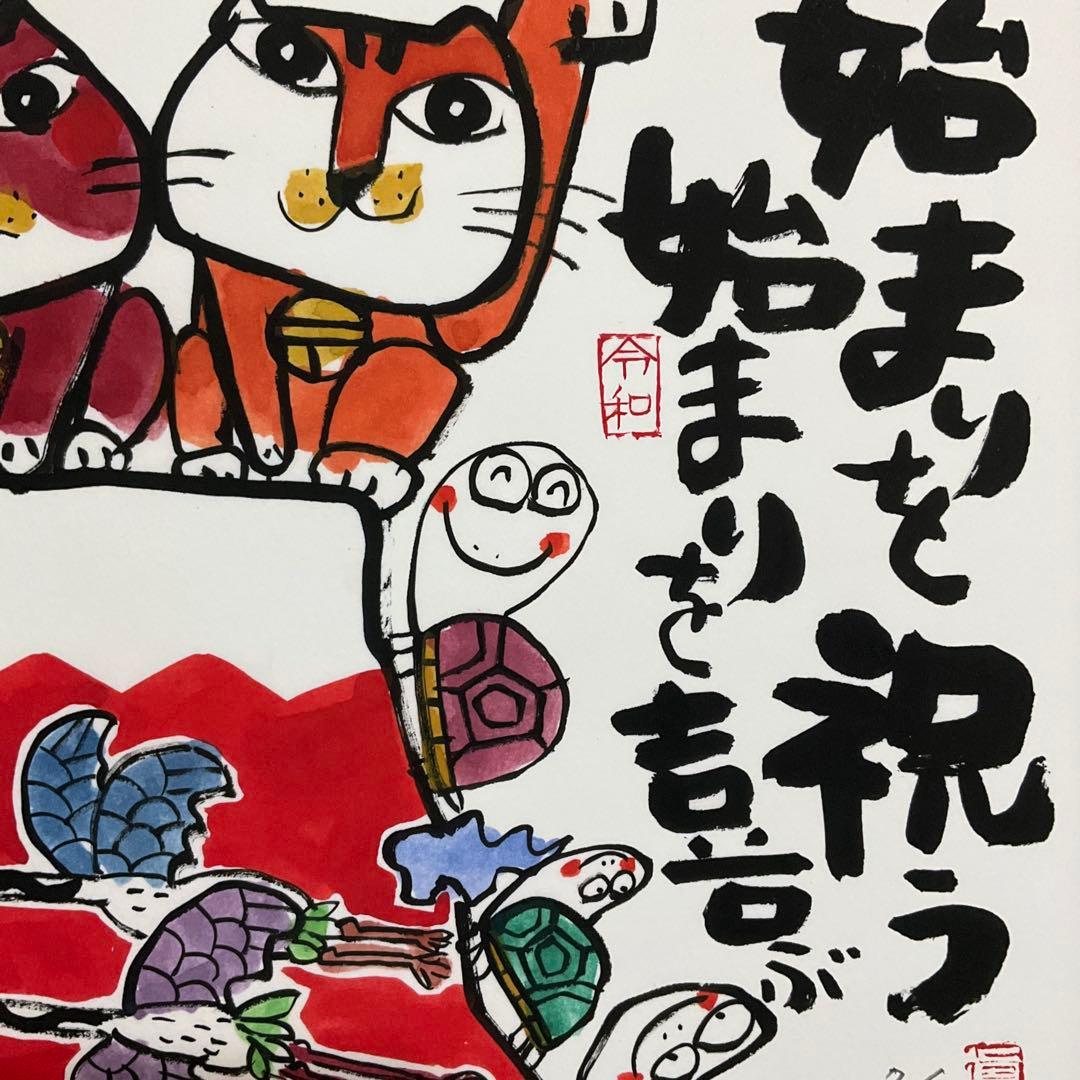 始まりを祝う
始まりを喜ぶ
令和